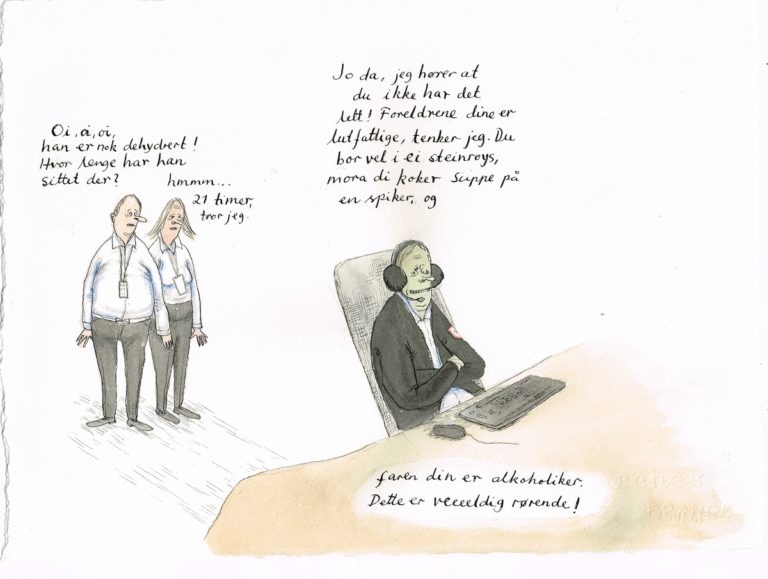 Oi, oi, oi,
han er nok dehydrert!
Hvor lenge har han
sittet der?
hmmm...
21 timer,
tror jeg.
Jo da, jeg hører at
du ikke har det
lett! Foreldrene dine er
lutfattige, tenker jeg. Du
bor vel i ei steinrøys,
mora di koker suppe på
en spiker, og
faren din er alkoholiker.
Dette er veeeeldig rørende!
Arches